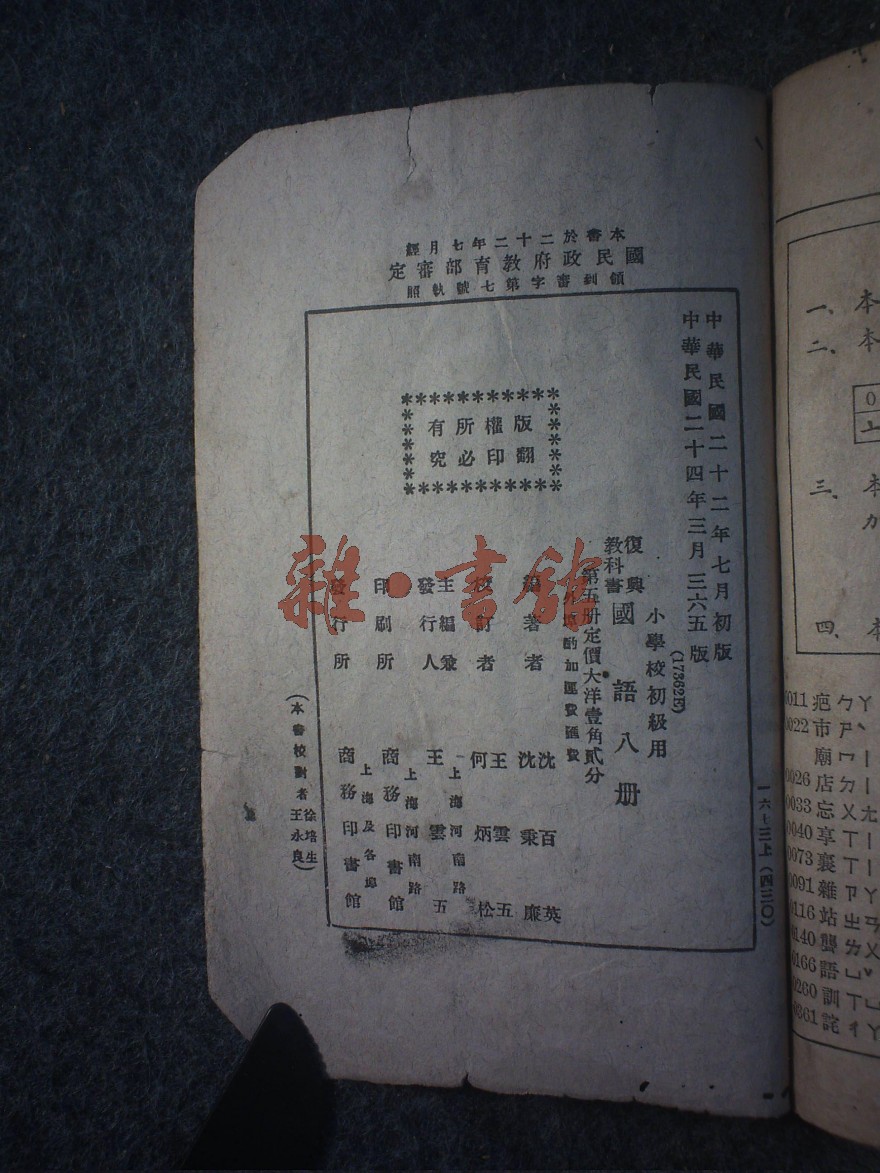 本書於二十二年七月經
國民政府教育部審定
領到審字第七號執照
中華民國二十二年七月初版
中華民國二十四年三月三六五版
(17362E)
小學校初級用
復興教科書
國語八册
第五册定價大洋壹角貳分
外埠酌加運費匯費
編著者 沈百英 沈秉廉
校訂者 王雲五 何炳松
主編兼發行人 王雲五
上海河南路
印刷所 商務印書館
上海河南路
發行所 商務印書館
上海及各埠
版權所有
翻印必究
(本書校對者 徐培生 王永良)
一六七三上(四三〇)
雜·書館
一、本
二、本
三、本
四、本
0011 疤 ㄅㄚ
0022 市 ㄕˋ
廟 ㄇㄧ
0026 店 ㄉㄧ
0033 忘 ㄨㄤ
0040 享 ㄒㄧ
0073 襄 ㄒㄧ
0091 雜 ㄗㄚ
0116 站 ㄓㄢ
0140 龔 ㄍㄨ
0166 語 ㄩˇ
0260 訓 ㄒㄩ
0361 詫 ㄔㄚ